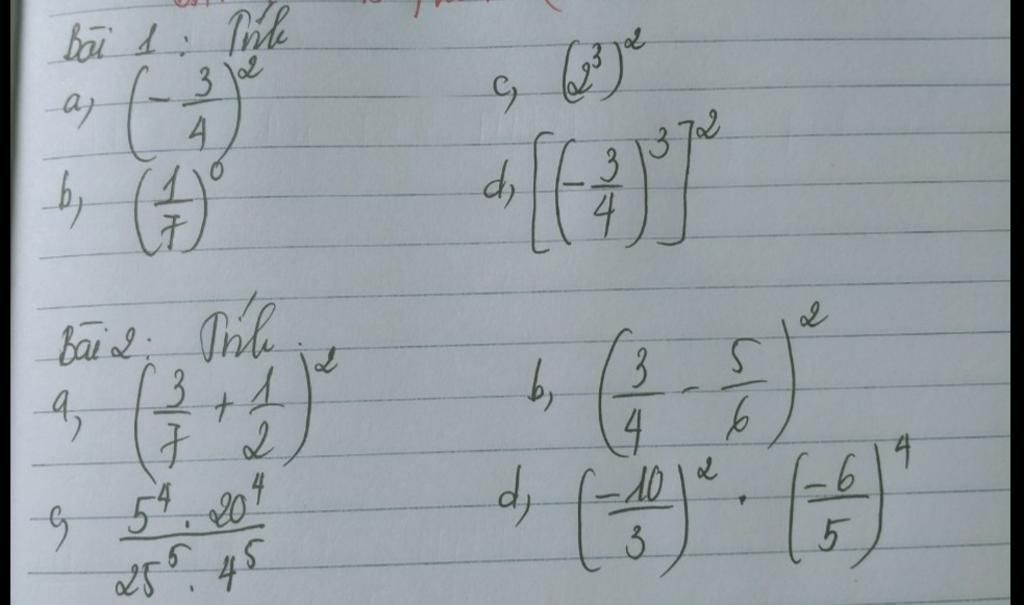 Bài 1 : Tính
a, (-3/4)^2
c, (2^3)^2
b, (1/7)^0
d, [(-3/4)^3]^2
Bài 2 : Tính
a, (3/7 + 1/2)^2
b, (3/4 - 5/6)^2
c, (5^4 . 20^4)/(25^5 . 4^5)
d, (-10/3)^2 . (-6/5)^4